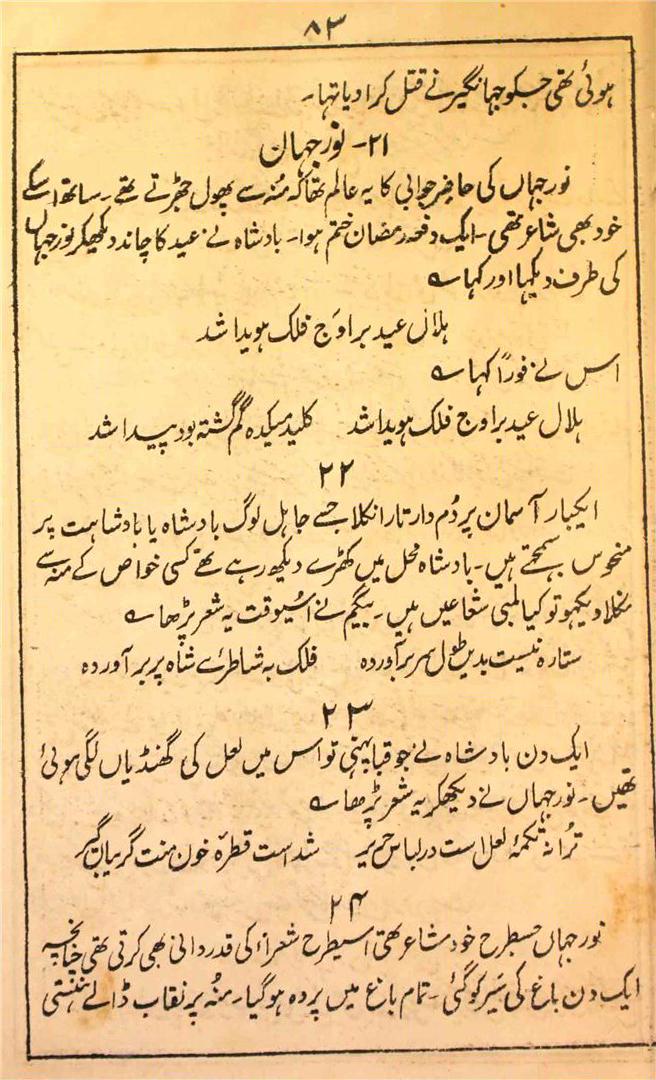 ۸۳
ہوئی تھی جسکو جہانگیر نے قتل کرا دیا تہا۔
۲۱۔ نور جہان
نور جہاں کی حاضر جوابی کا یہ عالم تھا کہ منہ سے پھول جھڑتے تھے۔ ساتھ اسکے
خود بھی شاعر تھی۔ ایک دفعہ رمضان ختم ہوا۔ بادشاہ نے عید کا چاند دیکھکر نور جہاں
کی طرف دیکہا اور کہا ؎
ہلال عید بر اوج فلک ہویدا شد
اس نے فوراً کہا ؎
ہلال عید بر اوج فلک ہویدا شد کلید میکدہ گم گشتہ بود پیدا شد
۲۲
ایکبار آسمان پر دُم دار تارا نکلا جسے جاہل لوگ بادشاہ یا بادشاہت پر
منحوس سمجھتے ہیں۔ بادشاہ محل میں کھڑے دیکھ رہے تھے کسی خواص کے منہ سے
نکلا دیکہو تو کیا لمبی شعاعیں ہیں۔ بیگم نے اسیوقت یہ شعر پڑھا ؎
ستارہ نیست بدیں طول سر بر آوردہ فلک بہ شاطرئے شاہ پر بر آوردہ
۲۳
ایک دن بادشاہ نے جو قبا پہنی تو اس میں لعل کی گھنڈیاں لگی ہوئی
تھیں۔ نور جہاں نے دیکھکر یہ شعر پڑھا ؎
ترا نہ تکمۂ لعل است در لباس حریر شد است قطرۂ خون منت گریباں گیر
۲۴
نور جہاں جسطرح خود شاعر تھی اسیطرح شعراء کی قدردانی بھی کرتی تھی چنانچہ
ایک دن باغ کی سَیر کو گئی۔ تمام باغ میں پردہ ہو گیا۔ منہ پر نقاب ڈالے